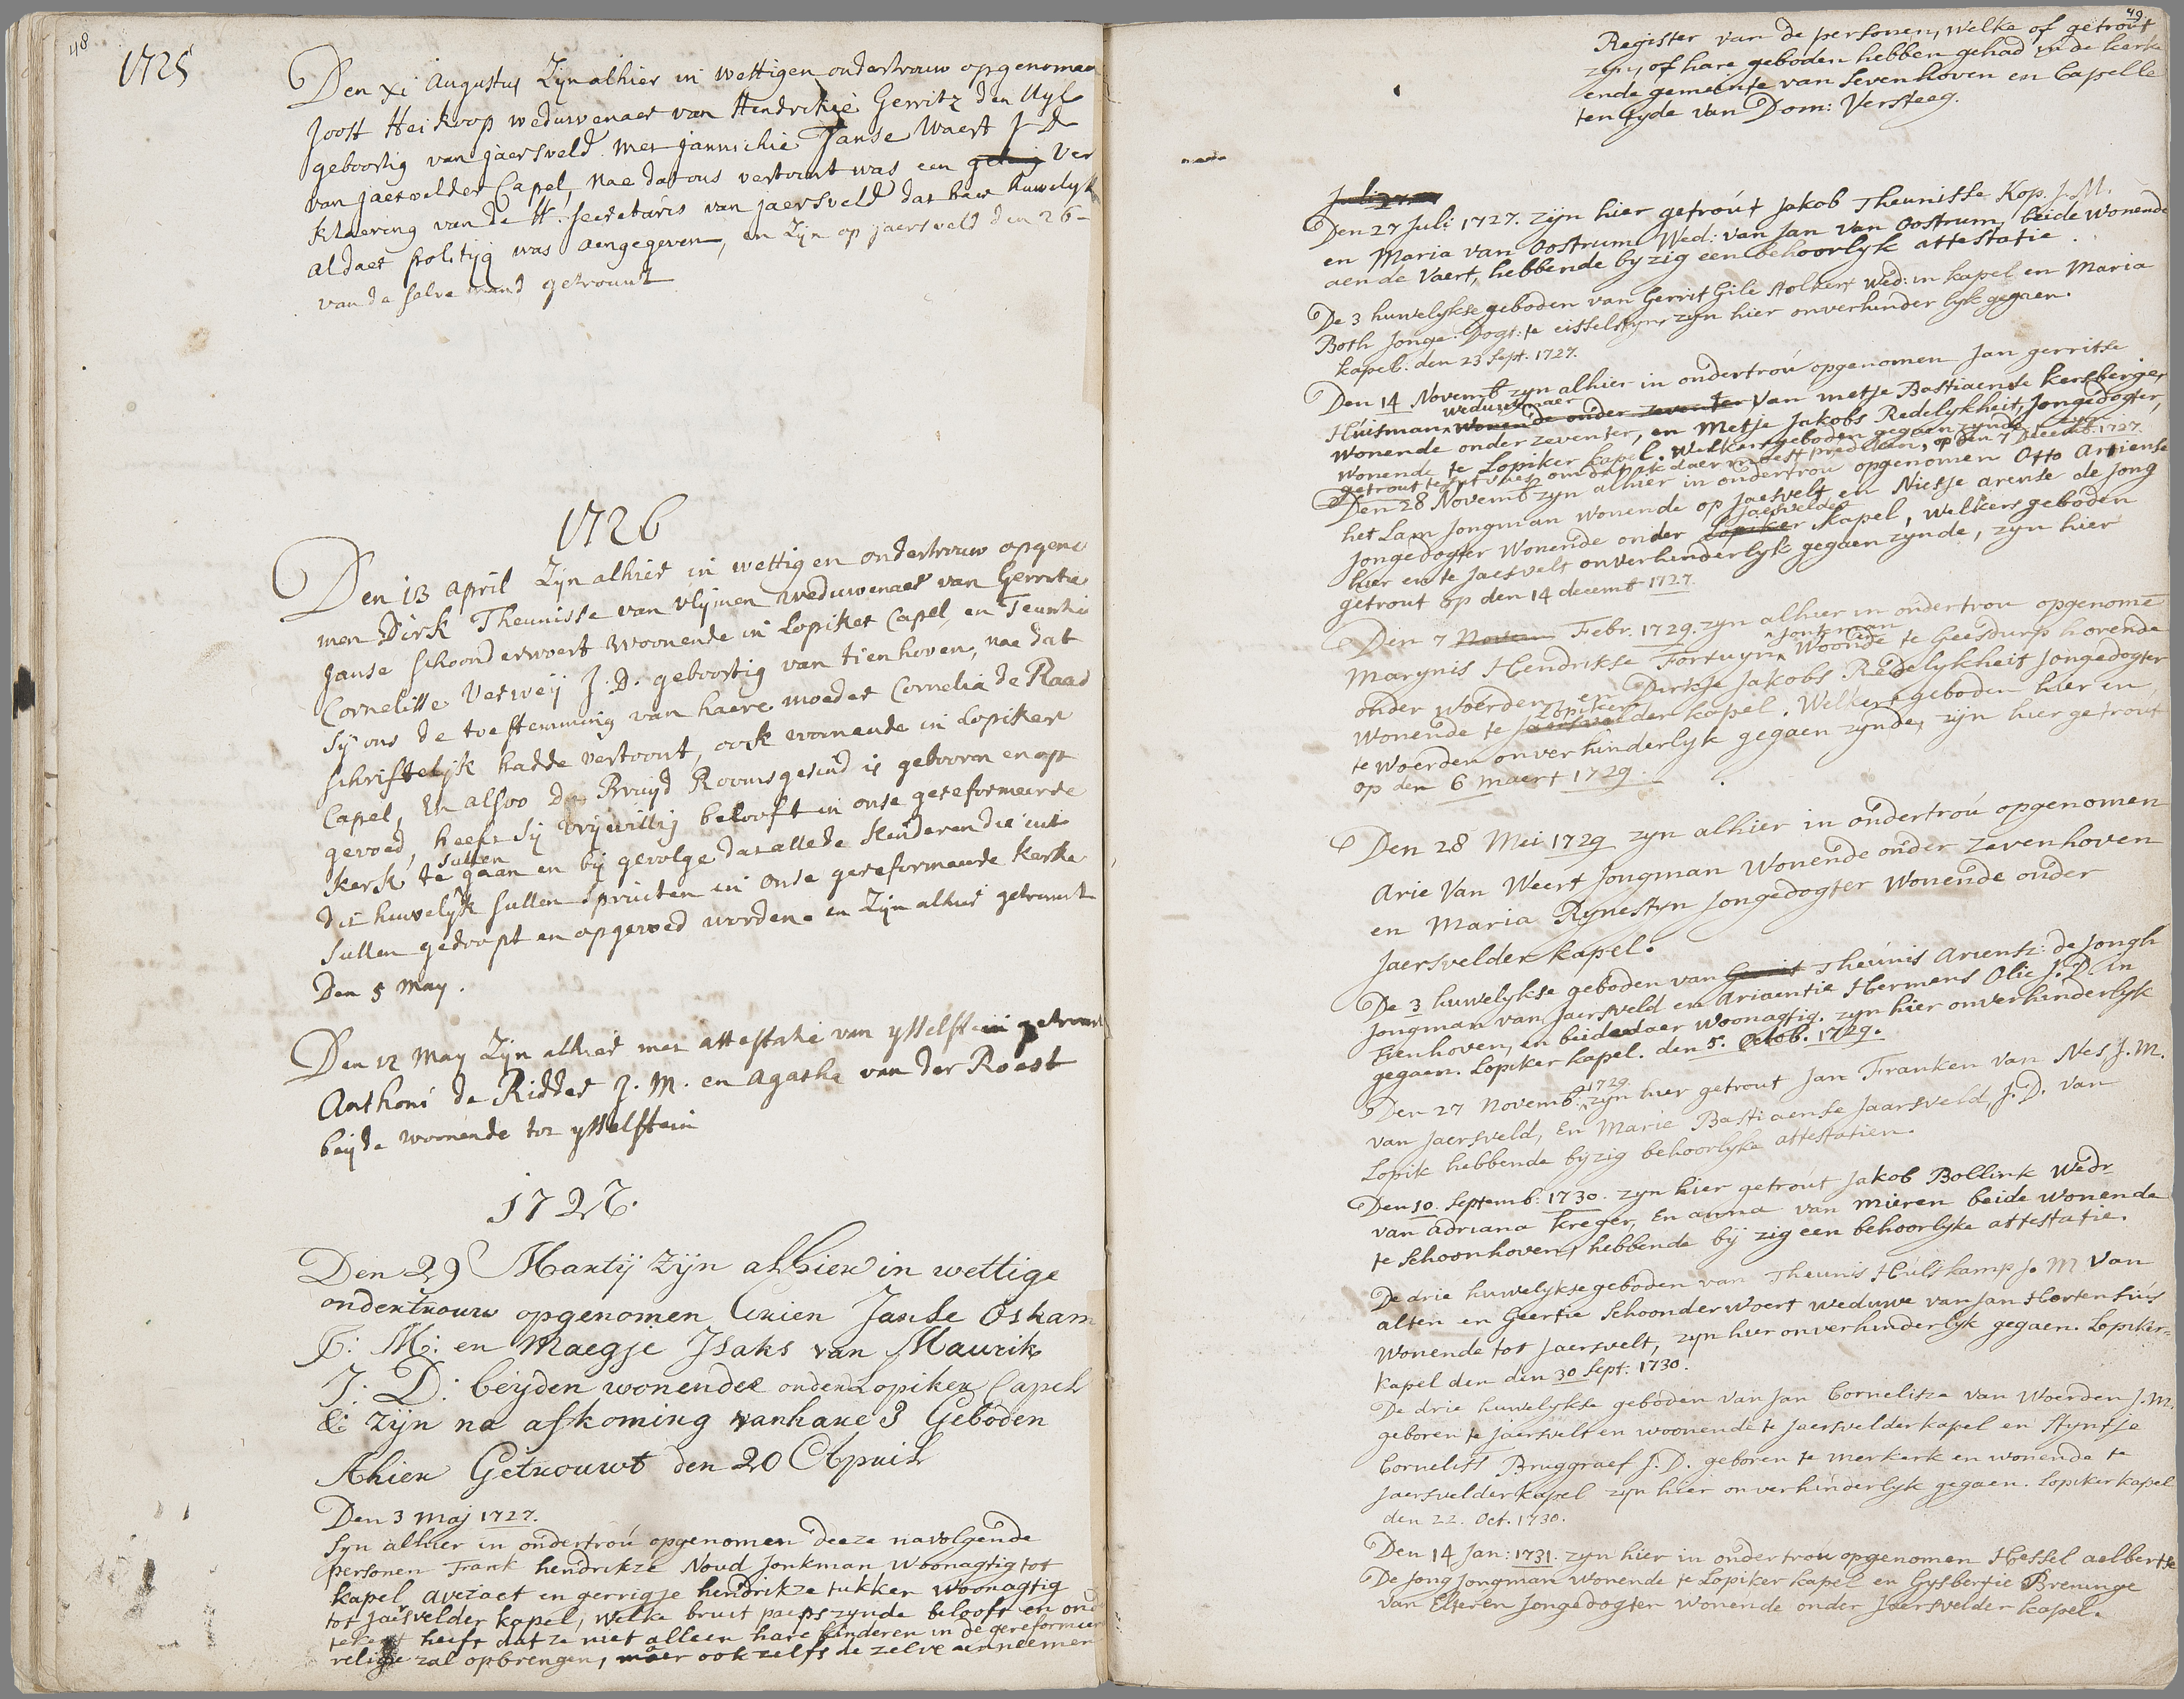 48
1725
Den xi Augustus Zijn alhier in wettigen ondertrouw opgenomen
Joost Heikoop weduwenaer van Hendrikje Gerritz den Uyl
geboortig van jaersveld. met jannichie Janse Waert J D
van jaersvelder Capel, nae dat ons vertoont was een ver
klaering van de H. secretaris van jaersveld dat haer huwelijk
aldaer politijq was aengegeven, en Zijn op jaersveld den 26-
van de selve mand getrouwt
1726
Den 13 April Zijn alhier in wettigen ondertrouw opgeno
men Dirk Theunisse van Vlijmen weduwenaer van Gerritie
Janse schoonderwoert woonende in Lopiker Capel, en Teuntie
Cornelisse Verweij J. D. geboortig van tienhoven, nae dat
sij ons de toestemming van haere moeder Cornelia de Raad
schriftelijk hadde vertoont, oock woonende in Lopiker
Capel, En alsoo de Bruijd Roomsgesind is gebooren en op
gevoed, heeft sij vrijwillig belooft in onse gereformeerde
kerk te sullen gaan en bij gevolge dat alle de kinderen die uit
dit huwelijk sullen spruiten in onse gereformeerde kerke
sullen gedoopt en opgevoed worden. en Zijn alhier getrouwt
Den 5 May.
Den 12 May Zijn alhier met attestatie van ysselstein getrouwt
Anthoni de Ridder J. M. en Agatha van der Roest
beijde woonende tot ysselstein
1727.
Den 29 Martij zijn alhier in wettige
ondertrouw opgenomen Arien Janse Oskam
J: M: en Maegje Isaks van Maurik
J: D: beijden wonende onder Lopiker Capel
&: zijn na afkoming van hare 3 Geboden
Alhier Getrouwt den 20 April
Den 3 Maj 1727.
Syn alhier in ondertroú opgenomen deeze navolgende
personen Frank hendrikze Noud Jonkman, Woonagtig tot
kapel averaet en gerrigje hendrikze tukker woonagtig
tot Jaersvelder kapel, welke bruit paeps zynde belooft en ond
tekent heeft dat ze niet alleen hare kinderen in de gereformeer
religie zal opbrengen, maer ook zelfs de zelve aenneemen
49
Register van de personen, welke of getrout
zyn, of hare geboden hebben gehad in de kerke
ende gemeinte van Sevenhoven en Capelle
ten tyde van Dom: Versteeg.
Den 27 Juli 1727. zyn hier getroút Jakob Theunisse Kop. J. M.
en Maria van Oostrum Wed: van Jan van Oostrum, beide wonende
aen de Vaert, hebbende by zig een behoorlyk attestatie.
De 3 huwelykse geboden van Gerrit Gile Stolker Wed: in kapel en Maria
Both Jonge Dogt: te eisselstyn, zyn hier onverhinderlyk gegaen.
kapel. den 23 Sept. 1727.
Den 14 Novemb zyn alhier in ondertroú opgenomen Jan gerritse
Huisman weduwenaer wonende onder zeventer van metje Bastiaense kersberger,
wonende onder zeventer, en Metje Jakobs Redelykheit, Jongedogter,
wonende te Lopiker kapel. Welker geboden gegaen zynde, zyn
getrout te Jutfaes omdat ik daer moest prediken, op den 7 Decemb. 1727.
Den 28 Novemb zyn alhier in ondertrou opgenomen Otto Ariense
het Lam Jongman wonende op Jaesvelt en Niesje arense de Jong
Jongedogter wonende onder Lopiker Jaesvelder kapel, welkers geboden
hier en te Jaesvelt onverhinderlyk gegaen zynde, zyn hier
getrout op den 14 decemb 1727.
Den 7 Novem Febr. 1729. zyn alhier in ondertrou opgenome
Marynis Hendrikse Fortuyn, Jonkman Woonde te Geesdurp horende
onder Woerden, en Dirkje Jakobs Redelykheit Jongedogter
wonende te Jaersvelder Lopiker kapel. Welkers geboden hier en
te Woerden onverhinderlyk gegaen zynde, zijn hier getrout
op den 6 maert 1729.
Den 28 Mei 1729 zyn alhier in ondertroú opgenomen
Arie Van Weert Jongman Wonende onder Zevenhoven
en Maria Rynestyn Jongedogter wonende onder
Jaersvelder kapel.
De 3 huwelykse geboden van Gerrit Theúnis Arientz: de Jongh
Jongman van Jaersveld en Ariaentie Hermens Olie J. D. in
Tienhoven, en beide daer woonagtig. zyn hier onverhinderlyk
gegaen. Lopiker kapel. den 5. Octob. 1729.
Den 27 Novemb: 1729 zyn hier getrout Jan Franken van Nes J. M.
van Jaersveld, En Marie Bastiaense Jaarsveld, J. D. van
Lopik hebbende by zig behoorlyke attestatien.
Den 10. Septemb: 1730. zyn hier getroút Jakob Bollink Wedr
van adriana kreger, En anna van mieren beide wonende
te Schoonhoven, hebbende bij zig een behoorlyke attestatie.
De drie huwelykse geboden van Theunis Húlskamp J. M van
alten en Geertie Schoonderwoert weduwe van Jan Hortensius
wonende tot Jaersvelt, zyn hier onverhinderlyk gegaen. Lopiker-
kapel den den 30 Sept. 1730.
De drie huwelykse geboden van Jan Cornelisze van Woerden J. M.
geboren te Jaersvelt en woonende te Jaersvelder kapel en Styntje
Cornelisz Bruggraef J. D. geboren te Merkerk en wonende te
Jaersvelder kapel zyn hier onverhinderlyk gegaen. Lopiker kapel
den 22. Oct. 1730.
Den 14 Jan: 1731. zyn hier in ondertroú opgenomen Hessel aelbertse
De Jong Jongman wonende te Lopiker kapel en Gysbertie Breninge
van Elteren Jongedogter wonende onder Jaersvelder kapel.